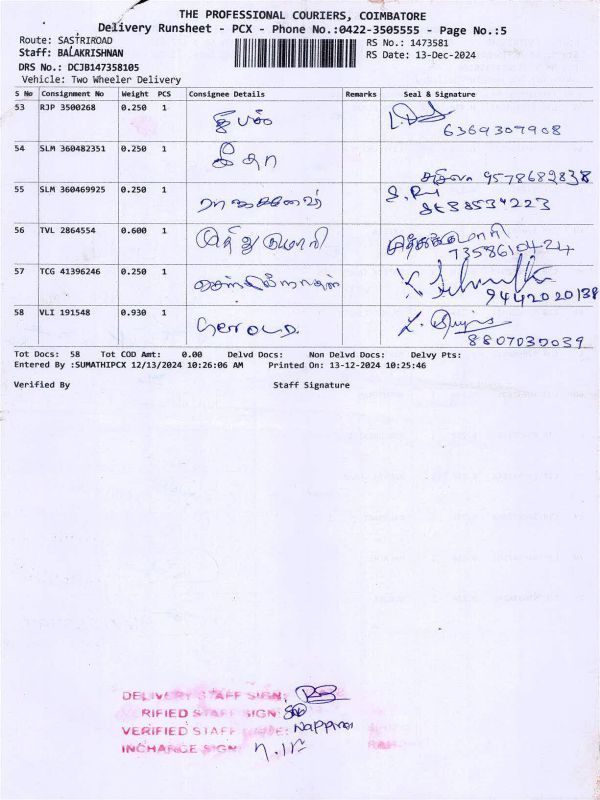 THE PROFESSIONAL COURIERS, COIMBATORE
Delivery Runsheet - PCX - Phone No.:0422-3505555 - Page No.:5
Route: SASTRIROAD
RS No.: 1473581
Staff: BALAKRISHNAN
RS Date: 13-Dec-2024
DRS No.: DCJB147358105
Vehicle: Two Wheeler Delivery
S No Consignment No Weight PCS Consignee Details Remarks Seal & Signature
53 RJP 3500268 0.250 1 தீபக்
6369307908
54 SLM 360482351 0.250 1 கீதா
9578682838
55 SLM 360469925 0.250 1
8838534223
56 TVL 2864554 0.600 1 முத்துகுமாரி
7358610424
57 TCG 41396246 0.250 1
9442020138
58 VLI 191548 0.930 1
8807030039
Tot Docs: 58 Tot COD Amt: 0.00 Delvd Docs: Non Delvd Docs: Delvy Pts:
Entered By :SUMATHIPCX 12/13/2024 10:26:06 AM Printed On: 13-12-2024 10:25:46
Verified By Staff Signature
DELIVERY STAFF SIGN:
RIFIED STAFF SIGN
VERIFIED STAFF
INCHARGE SIGN